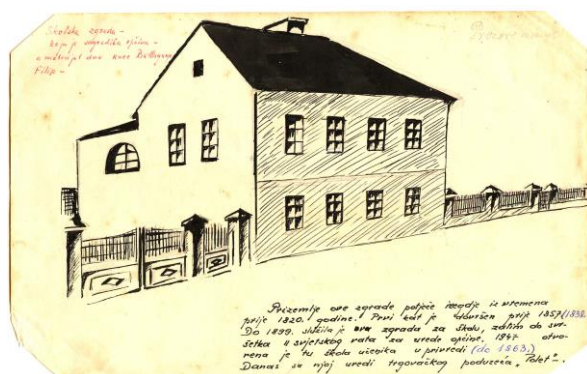 Školska zgrada -
koju je sagradila općina -
a materijal dao knez Batthyany
Filip -
Prizemlje ove zgrade potječe negdje iz vremena
prije 1820. godine. Prvi kat je dovršen prije 1857 (1838.
Do 1899. služila je ova zgrada za školu, zatim do svr-
šetka II svjetskog rata za urede općine. 1947 otvo-
rena je tu škola učenika u privredi (do 1963.)
Danas su njoj uredi trgovačkog poduzeća "Polet".